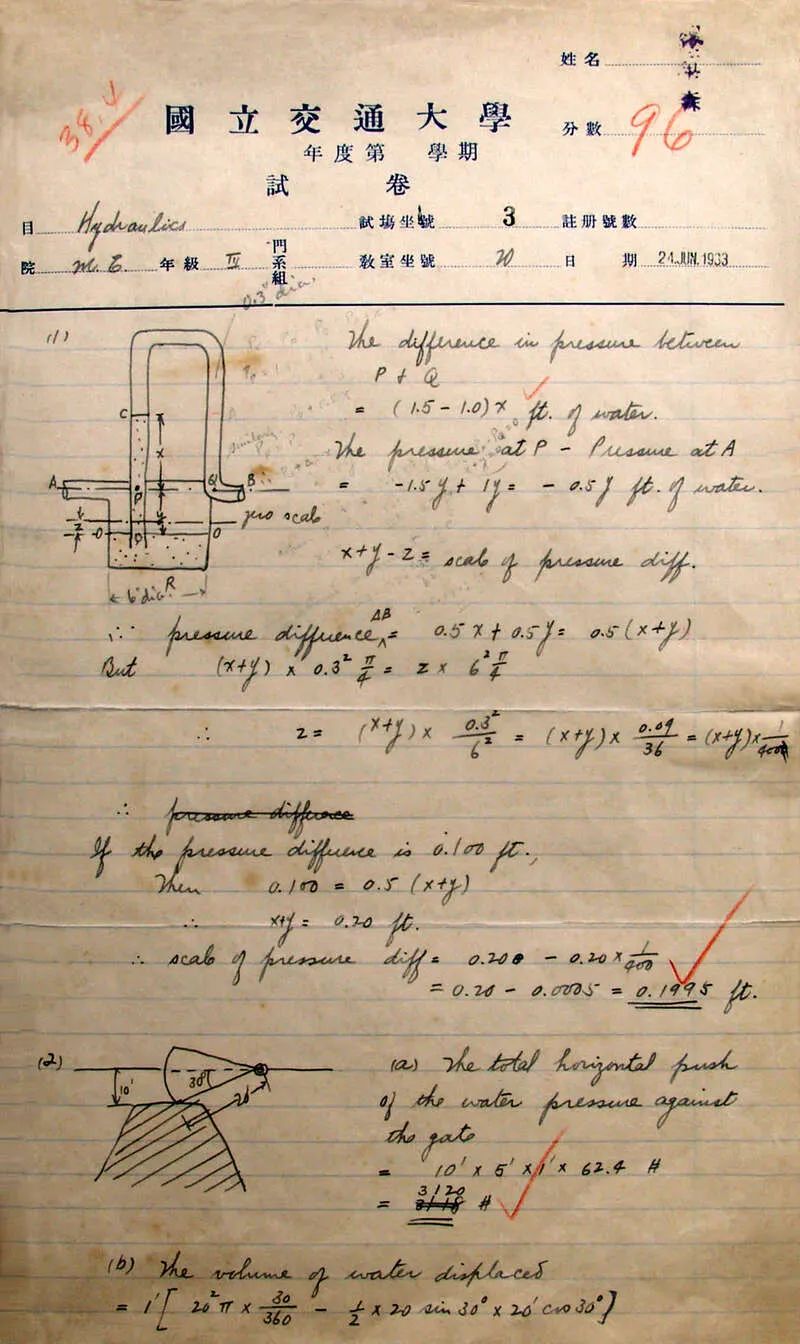 姓名
38.1
國立交通大學
分數 96
年度第 學期
試 卷
目 Hydraulics 試場坐號 3 註册號數
院 M. E. 年級 IV 門系組 教室坐號 20 日期 24.JUN.1933
0.3" dia.
(1)
The difference in pressure between
P + Q
= (1.5 - 1.0) x ft. of water.
C
x
The pressure at P - Pressure at A
A P Q B
= -1.5 y + 1y = - 0.5 y ft. of water.
zero scale
O O
D
x+y - z = scale of pressure diff.
R
6" dia.
∴ pressure difference AB = 0.5 x + 0.5 y = 0.5 (x+y)
But (x+y) x 0.3² π/4 = z x 6² π/4
∴ z = (x+y) x 0.3²/6² = (x+y) x 0.09/36 = (x+y) x 1/400
∴ pressure difference
If the pressure difference is 0.100 ft.,
Then 0.100 = 0.5 (x+y)
∴ x+y = 0.20 ft.
∴ scale of pressure diff = 0.200 - 0.20 x 1/400
= 0.20 - 0.0005 = 0.1995 ft.
(2)
30°
10'
20'
(a) The total horizontal push
of the water pressure against
the gate
= 10' x 5' x 1' x 62.4 #
= 3120 #
(b) The volume of water displaced
= 1' [ 20² π x 30/360 - 1/2 x 20 sin 30° x 20' cos 30° ]